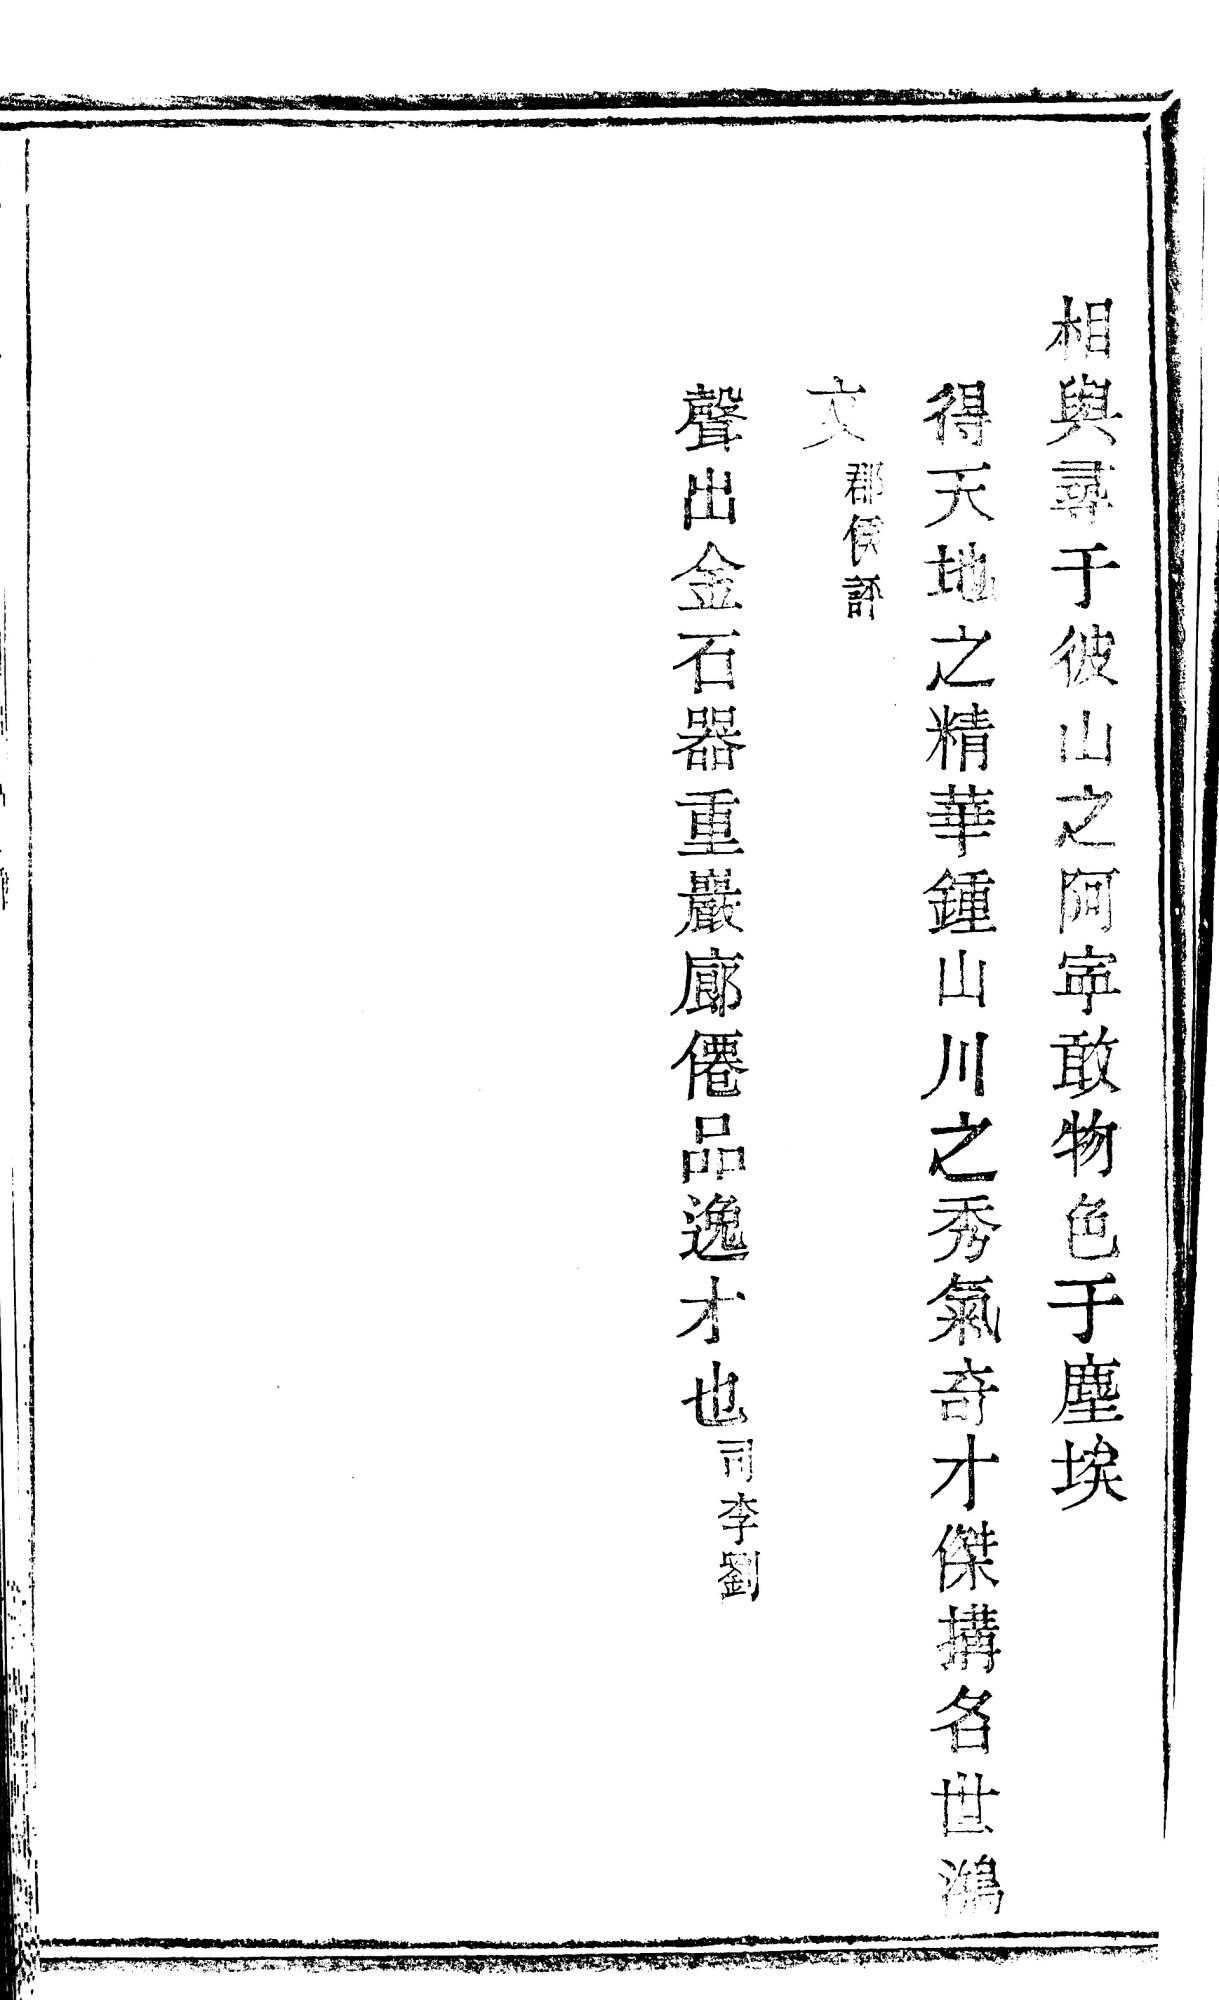 相與尋于彼山之阿寍敢物色于塵埃
得天地之精華鍾山川之秀氣奇才傑搆名世鴻
文郡侯評
聲出金石器重巖廊僊品逸才也司李劉